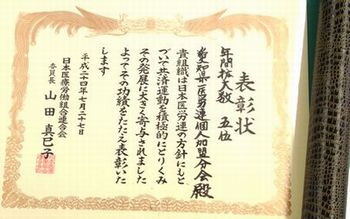 表彰状
年間拡大数 五位
愛知県医労連個人加盟分会殿
貴組織は日本医労連の方針にもと
づいて共済運動を積極的にとりくみ
その発展に大きく寄与されました
よってその功績をたたえ表彰いた
します
平成二十四年七月二十七日
日本医療労働組合連合会
委員長 山田真巳子